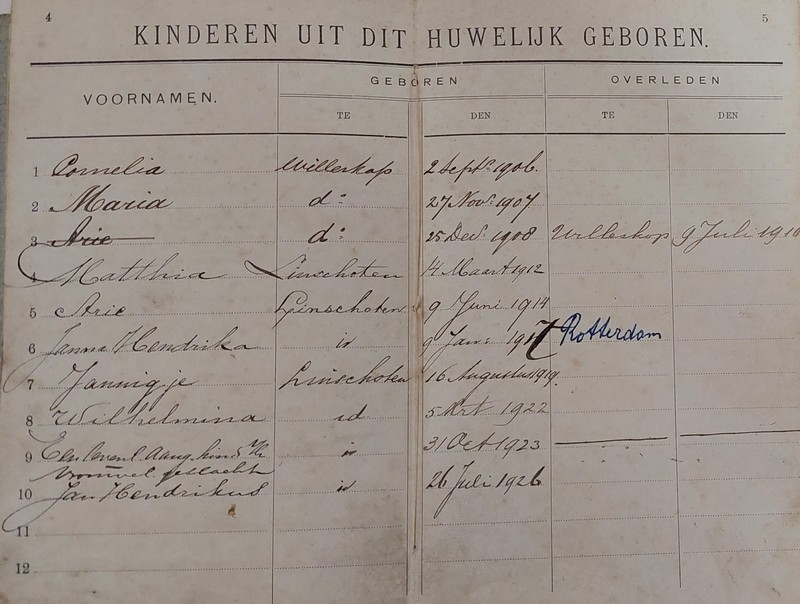 4
5
KINDEREN UIT DIT HUWELIJK GEBOREN.
VOORNAMEN. GEBOREN OVERLEDEN
TE DEN TE DEN
1 Cornelia Willeskop 2 Sept. 1906.
2 Maria do 27 Nov. 1907
3 Arie do 25 Dec. 1908 Willeskop 9 Juli 1910
4 Matthia Linschoten 14 Maart 1912
5 Arie Linschoten 9 Juni 1914
6 Janna Hendrika id 9 Jan. 1917 Rotterdam
7 Jannigje Linschoten 16 Augustus 1919.
8 Wilhelmina id 5 1922
9 Een levenl. Aang. id 31 Oct 1923
vrouwel. geslacht
10 Jan Hendrikus id 26 Juli 1926
11
12